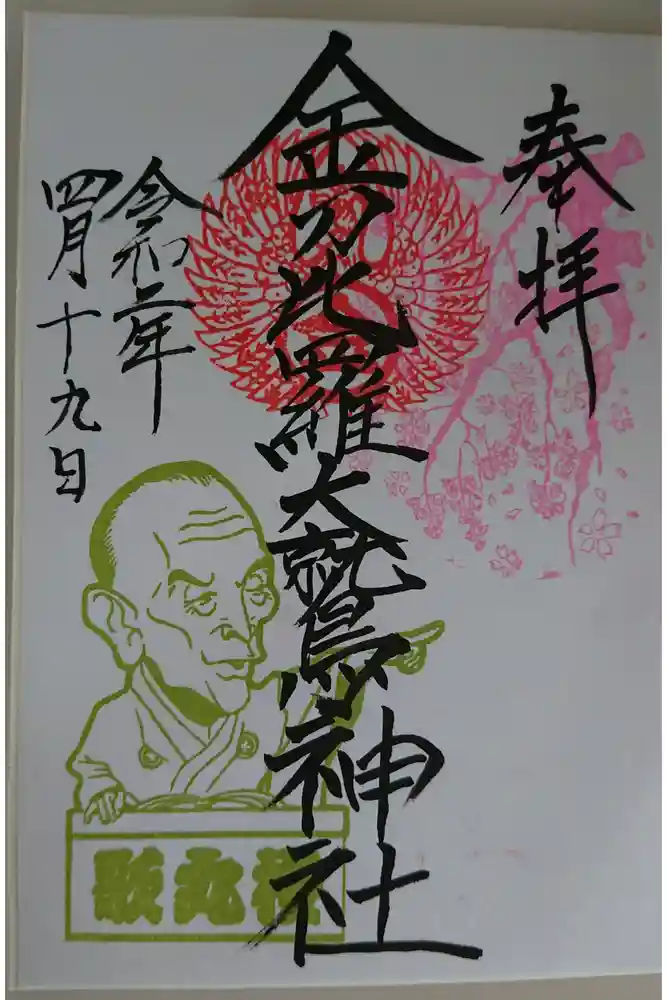 奉拝
金刀比羅大鷲神社
令和二年
四月十九日
歌丸桜